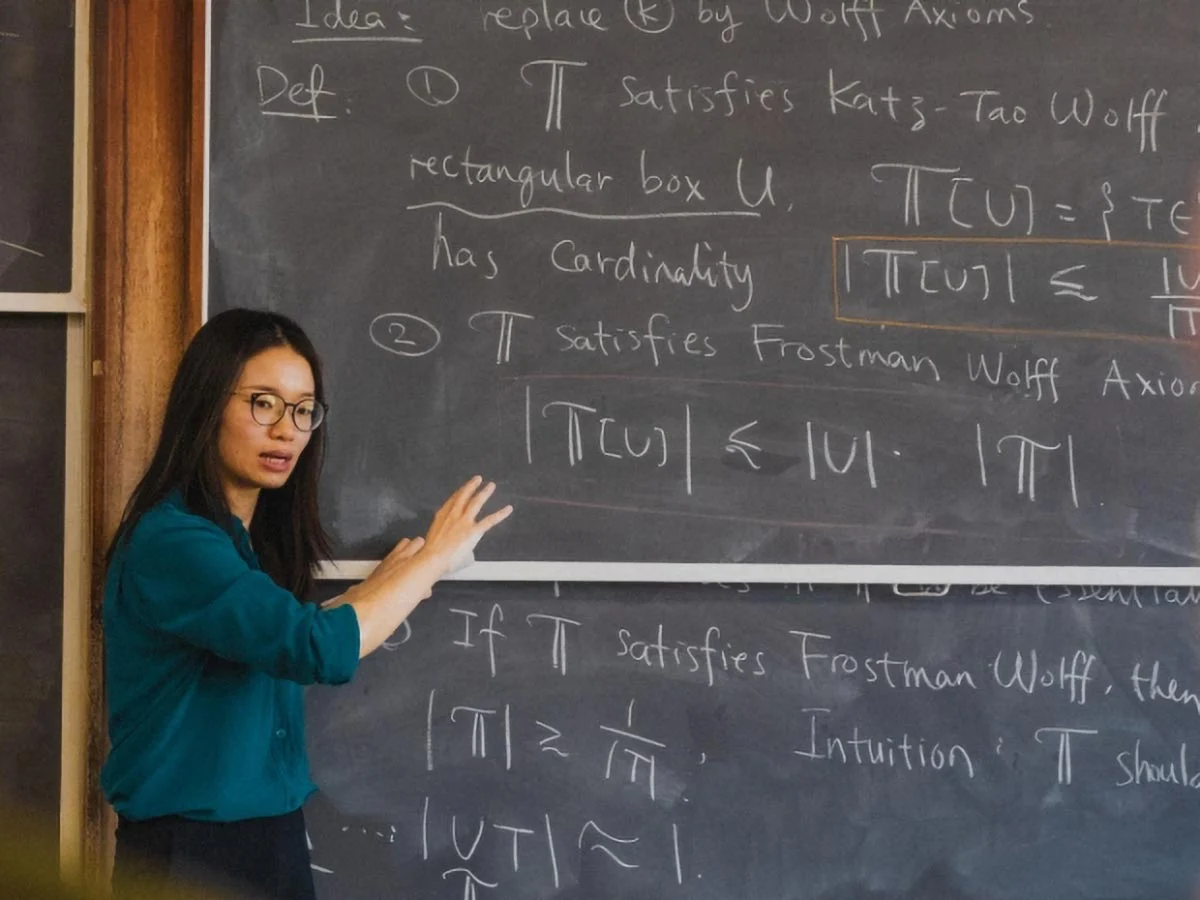 Idea: replace (K) by Wolff Axioms
Def: ① 𝕋 satisfies Katz-Tao Wolff
rectangular box U, 𝕋[U] = { T∈
has Cardinality |𝕋[U]| ≲ |U
② 𝕋 satisfies Frostman Wolff Axiom
|𝕋[U]| ≲ |U| · |𝕋|
be essential
If 𝕋 satisfies Frostman Wolff, then
|𝕋| ≳ 1/|T|, Intuition: 𝕋 should
|∪T| ≈ 1.
𝕋